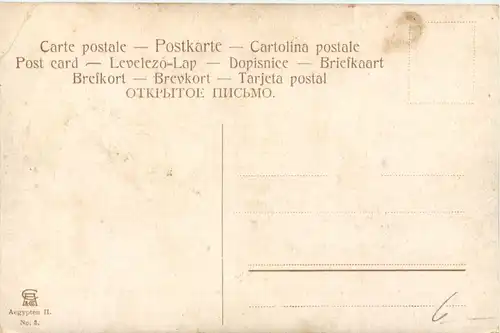 Carte postale — Postkarte — Cartolina postale
Post card — Levelező-Lap — Dopisnice — Briefkaart
Brefkort — Brevkort — Tarjeta postal
ОТКРЫТОЕ ПИСЬМО.
Aegypten II.
No. 8.
6